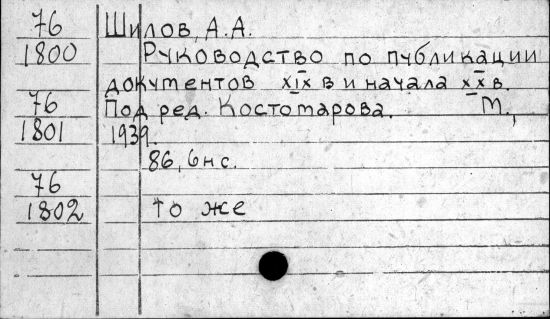 76 Шилов, А.А.
1800 Руководство по публикации
документов XIX в и начала XX в.
76 Под ред. Костомарова. М.,
1801 1939.
86, 6нс.
76
1802 То же